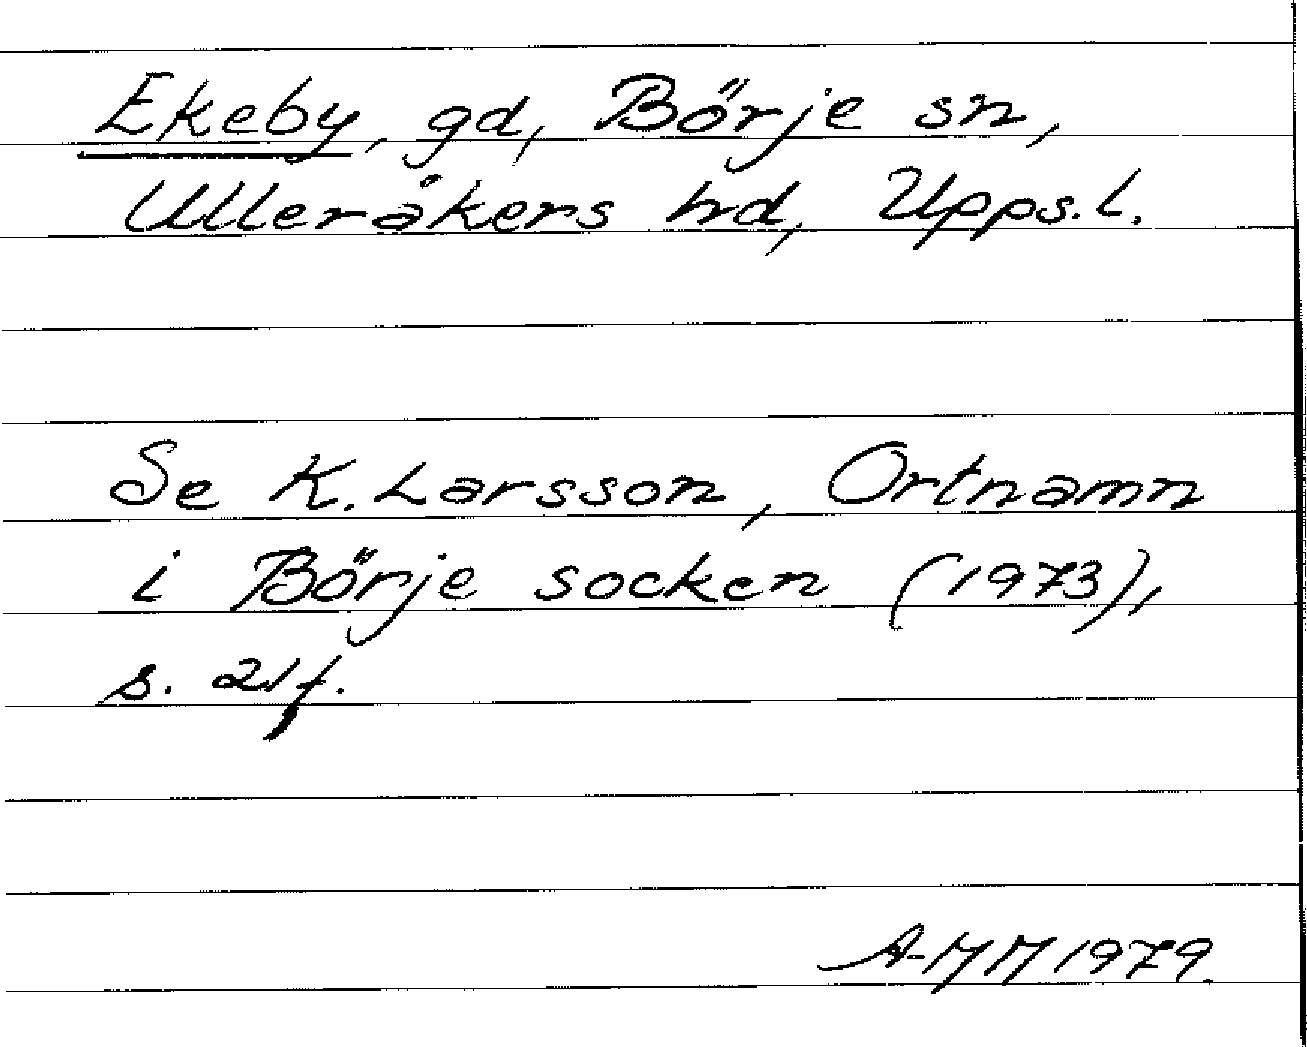 Ekeby, gd, Börje sn,
Ulleråkers hd, Upps.l.
Se K. Larsson, Ortnamn
i Börje socken (1973),
s. 21f.
A-MM 1979.